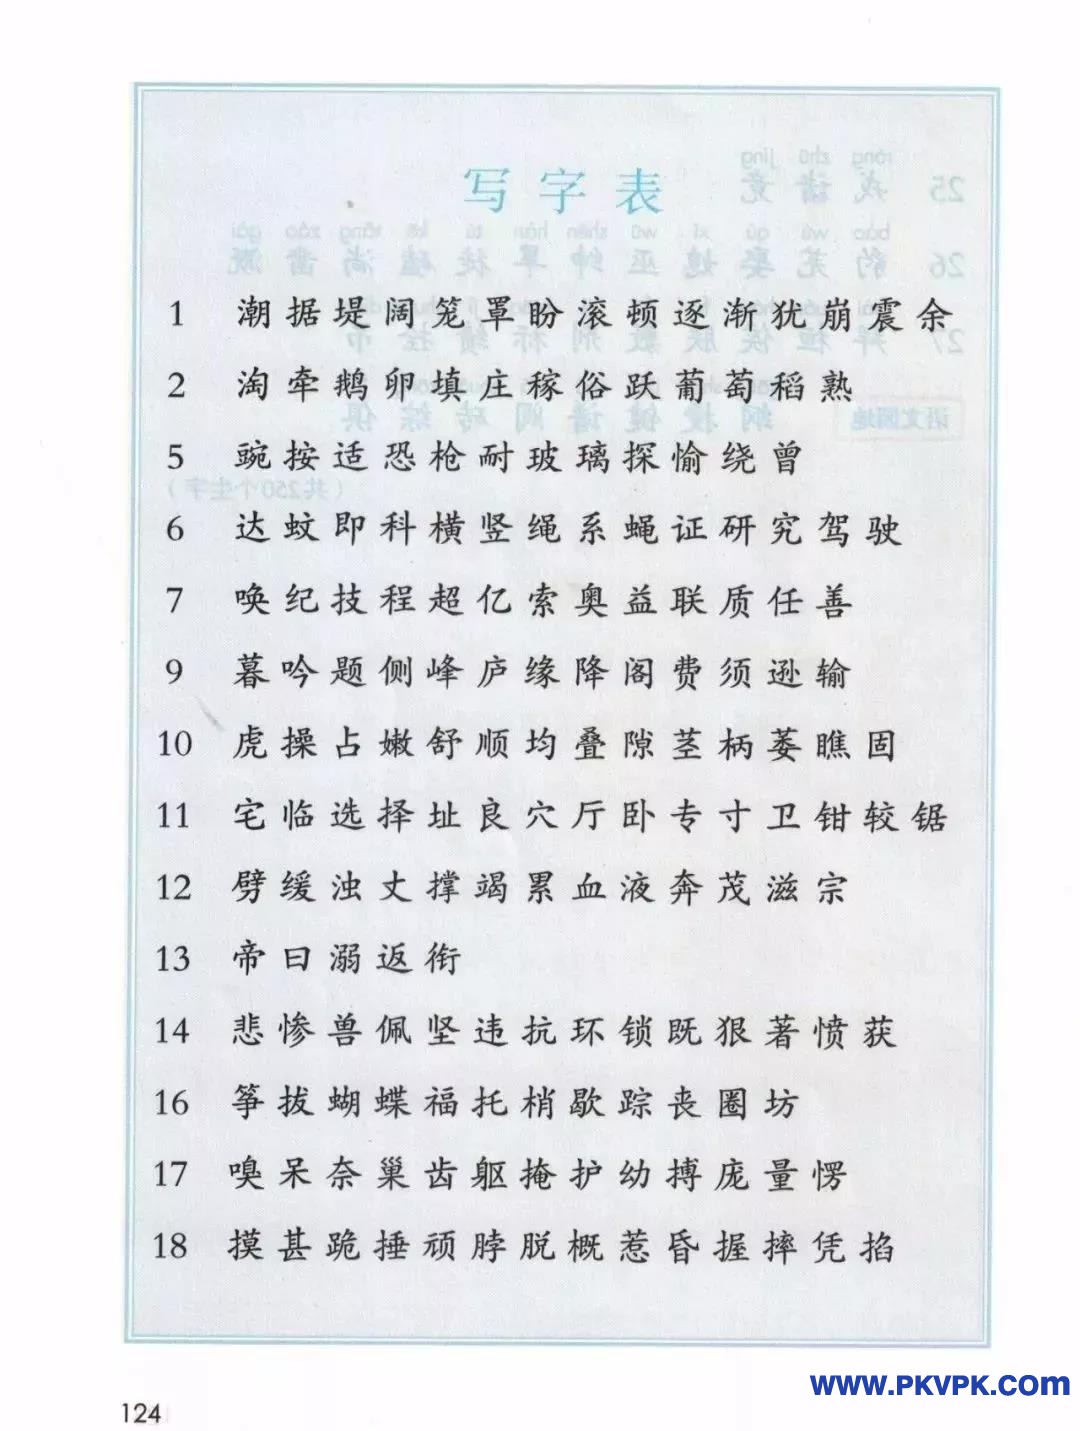 写字表
1 潮据堤阔笼罩盼滚顿逐渐犹崩震余
2 淘牵鹅卵填庄稼俗跃葡萄稻熟
5 豌按适恐枪耐玻璃探愉绕曾
6 达蚊即科横竖绳系蝇证研究驾驶
7 唤纪技程超亿索奥益联质任善
9 暮吟题侧峰庐缘降阁费须逊输
10 虎操占嫩舒顺均叠隙茎柄萎瞧固
11 宅临选择址良穴厅卧专寸卫钳较锯
12 劈缓浊丈撑竭累血液奔茂滋宗
13 帝曰溺返衔
14 悲惨兽佩坚违抗环锁既狠著愤获
16 筝拔蝴蝶福托梢歇踪丧圈坊
17 嗅呆奈巢齿躯掩护幼搏庞量愣
18 摸甚跪捶顽脖脱概惹昏握摔凭掐
www.PKVPK.com
124